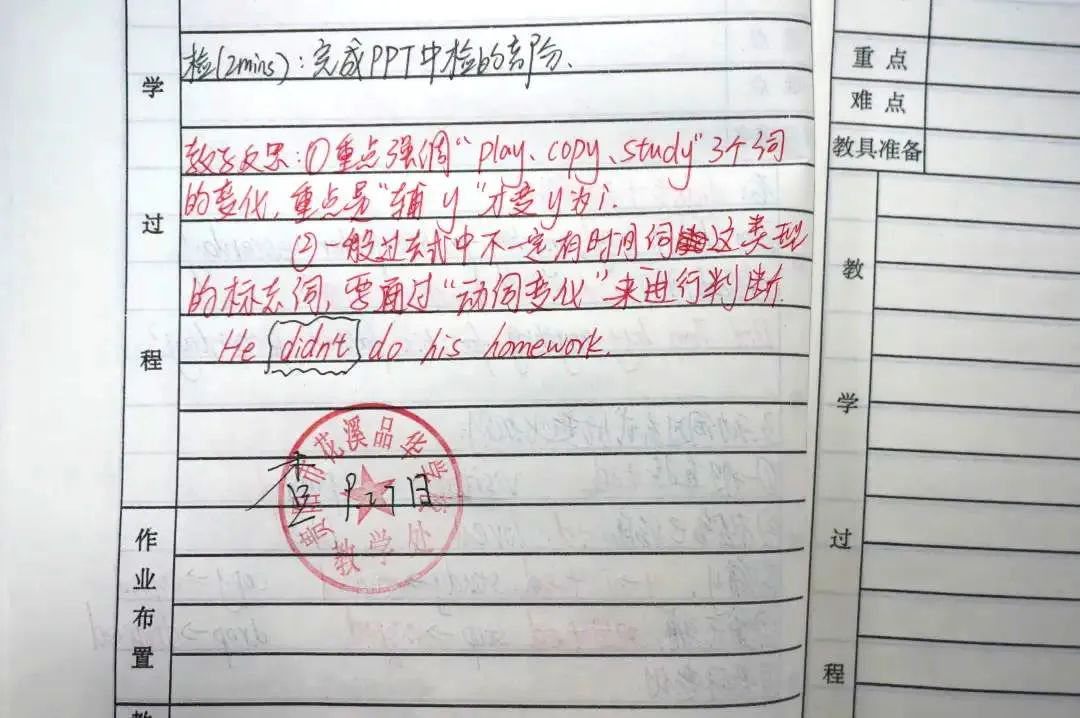 检(2mins):完成PPT中检的部分.
教学反思:①重点强调“play、copy、study”3个词
的变化,重点是“辅y”才变y为i.
②一般过去式中不一定有时间词这类型
的标志词,要通过“动词变化”来进行判断.
He didn't do his homework.
查 9.27日
贵阳市花溪品华学校
教学处
学
过
程
作
业
布
置
教
重点
难点
教具准备
教
学
过
程